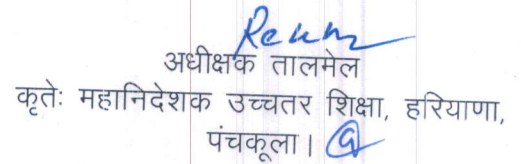 Renu
अधीक्षक तालमेल
कृतेः महानिदेशक उच्चतर शिक्षा, हरियाणा,
पंचकूला।